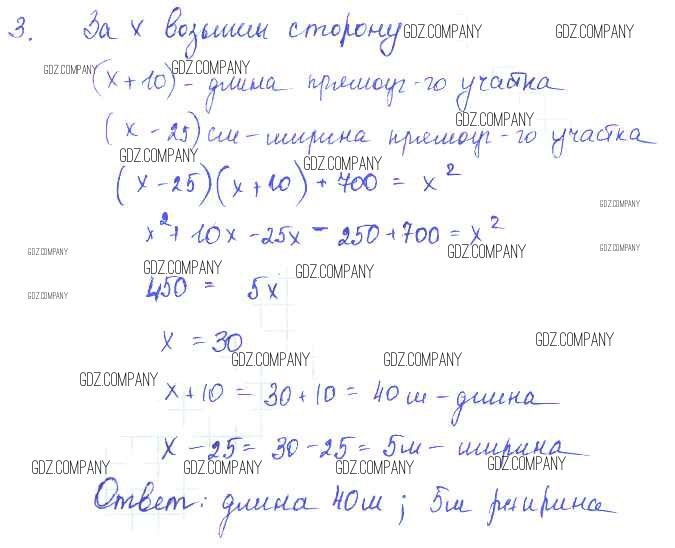 3. За x возьмем сторону GDZ.COMPANY GDZ.COMPANY
GDZ.COMPANY GDZ.COMPANY
(x + 10) - длина прямоуг-го участка
GDZ.COMPANY
(x - 25) см - ширина прямоуг-го участка
GDZ.COMPANY GDZ.COMPANY
(x - 25)(x + 10) + 700 = x²
GDZ.COMPANY
x² + 10x - 25x - 250 + 700 = x²
GDZ.COMPANY GDZ.COMPANY GDZ.COMPANY
GDZ.COMPANY GDZ.COMPANY
450 = 5x
GDZ.COMPANY
x = 30
GDZ.COMPANY
GDZ.COMPANY GDZ.COMPANY
GDZ.COMPANY
x + 10 = 30 + 10 = 40 м - длина
x - 25 = 30 - 25 = 5м - ширина
GDZ.COMPANY GDZ.COMPANY GDZ.COMPANY GDZ.COMPANY
Ответ: длина 40м; 5м